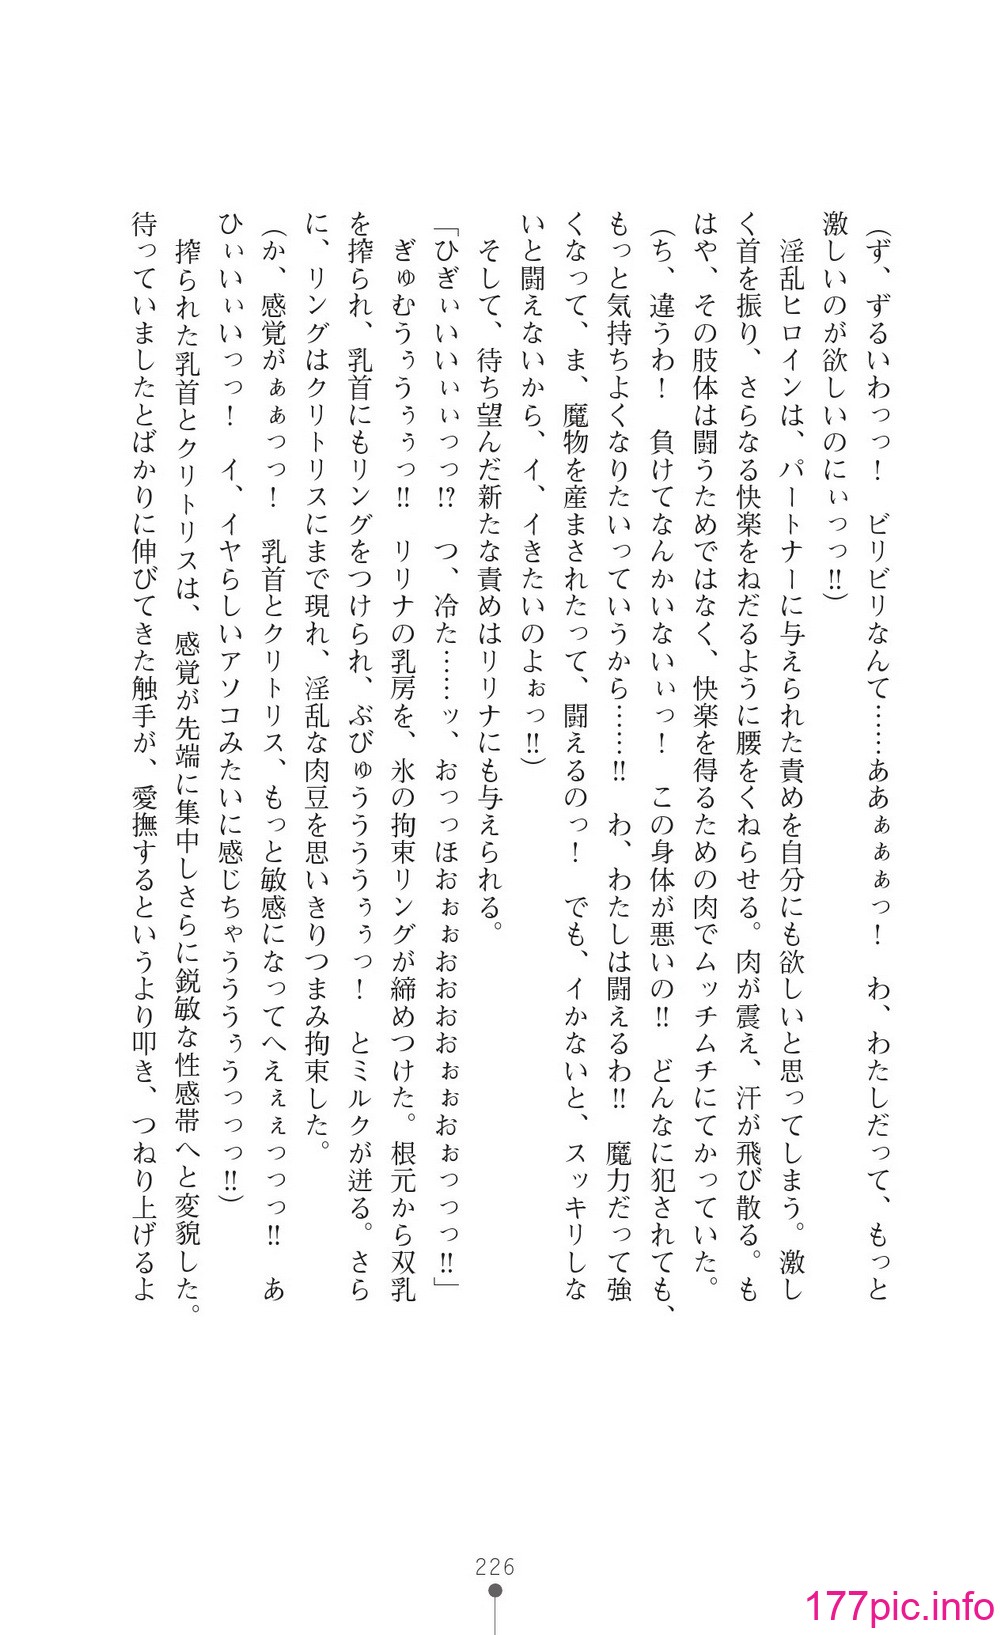 （ず、ずるいわっっ！　ビリビリなんて……ああぁぁぁっ！　わ、わたしだって、もっと
激しいのが欲しいのにぃっっ!!）
　淫乱ヒロインは、パートナーに与えられた責めを自分にも欲しいと思ってしまう。激し
く首を振り、さらなる快楽をねだるように腰をくねらせる。肉が震え、汗が飛び散る。も
はや、その肢体は闘うためではなく、快楽を得るための肉でムッチムチにてかっていた。
（ち、違うわ！　負けてなんかいないぃっ！　この身体が悪いの!!　どんなに犯されても、
もっと気持ちよくなりたいっていうから……!!　わ、わたしは闘えるわ!!　魔力だって強
くなって、ま、魔物を産まされたって、闘えるのっ！　でも、イかないと、スッキリしな
いと闘えないから、イ、イきたいのよぉっ!!）
　そして、待ち望んだ新たな責めはリリナにも与えられる。
「ひぎぃいいぃぃっっ!?　つ、冷た……ッ、おっっほおぉぉおおおおぉぉおぉっっっ!!」
　ぎゅむうぅうぅぅっ!!　リリナの乳房を、氷の拘束リングが締めつけた。根元から双乳
を搾られ、乳首にもリングをつけられ、ぶびゅうううぅぅっ！　とミルクが迸る。さら
に、リングはクリトリスにまで現れ、淫乱な肉豆を思いきりつまみ拘束した。
（か、感覚がぁぁっっ！　乳首とクリトリス、もっと敏感になってへえぇぇっっっ!!　あ
ひぃいぃいっっ！　イ、イヤらしいアソコみたいに感じちゃうううぅうっっっ!!）
　搾られた乳首とクリトリスは、感覚が先端に集中しさらに鋭敏な性感帯へと変貌した。
待っていましたとばかりに伸びてきた触手が、愛撫するというより叩き、つねり上げるよ
226
177pic.info